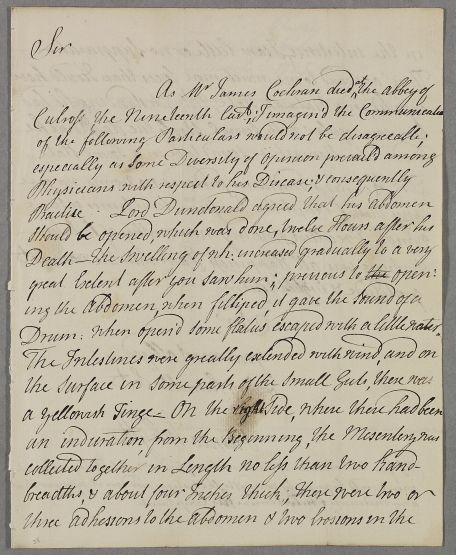 Sir
As Mr James Cochran died at the abbey of
Culross the Nineteenth Curt; I imagin'd the Communication
of the following Particulars would not be disagreeable;
especially as some Diversity of opinion prevail'd among
Physicians with respect to his Disease, & consequently
Practise. Lord Dundonald agreed that his abdomen
should be opened, which was done, twelve Hours after his
Death — The swelling of wh: increased gradually to a very
great Extent after you saw him; previous to the open:
ing the Abdomen, when fillip'd, it gave the Sound of a
Drum: when open'd some flatus escaped with a little water.
The Intestines were greatly extended with wind, and on
the surface in some parts of the small Guts, there was
a yellowish Tinge — On the right side, where there had been
an induration from the Beginning, the Mesentery was
collected together in Length no less than two hand-
breadths, & about four Inches thick; there were two or
three adhessons to the abdomen & two in the